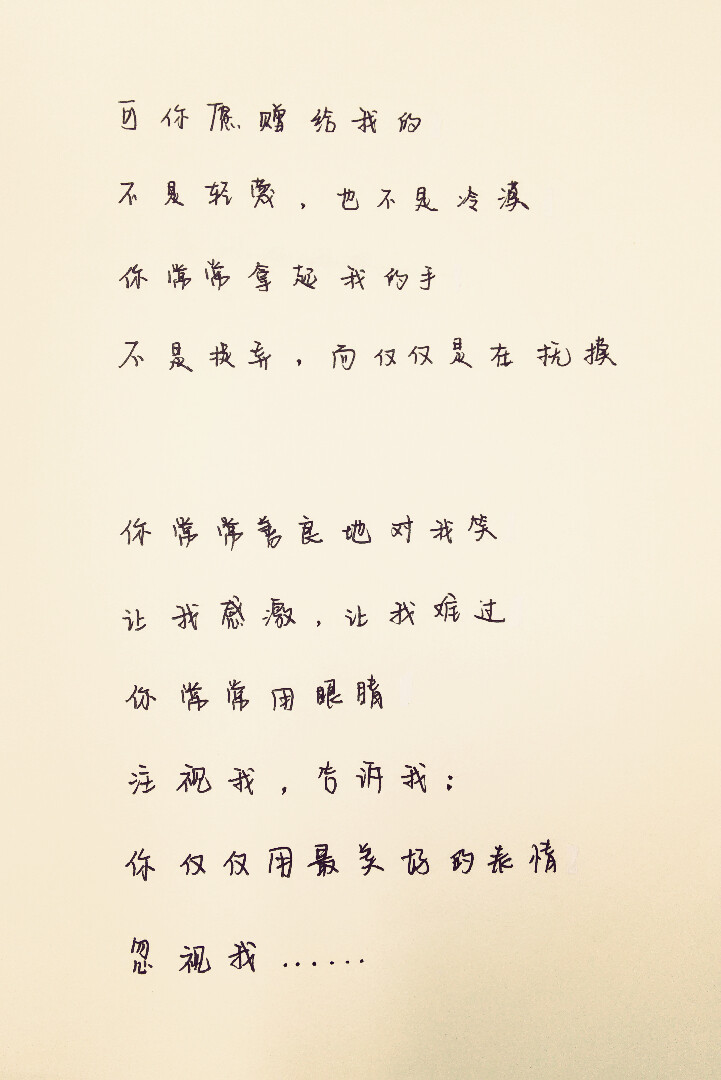 可你愿赠给我的
不是轻蔑，也不是冷漠
你常常拿起我的手
不是抛弃，而仅仅是在抚摸
你常常善良地对我笑
让我感激，让我难过
你常常用眼睛
注视我，告诉我：
你仅仅用最美好的表情
忽视我······